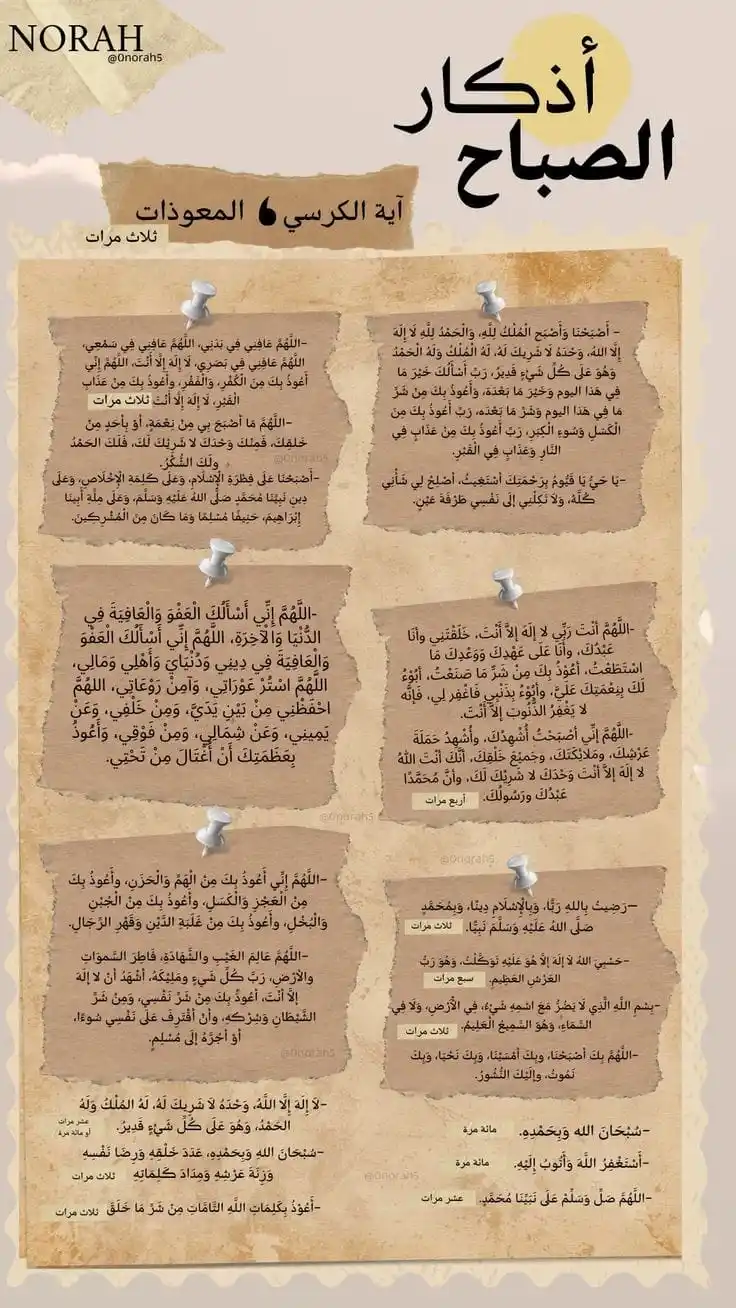 NORAH
@0norah5
أذكار
الصباح
آية الكرسي، المعوذات
ثلاث مرات
- أَصْبَحْنَا وَأَصْبَحَ الْمُلْكُ لِلَّهِ، وَالْحَمْدُ لِلَّهِ لَا إِلَهَ
إِلَّا اللهُ، وَحْدَهُ لَا شَرِيكَ لَهُ، لَهُ الْمُلْكُ وَلَهُ الْحَمْدُ
وَهُوَ عَلَى كُلِّ شَيْءٍ قَدِيرٌ، رَبِّ أَسْأَلُكَ خَيْرَ مَا
فِي هَذا اليوم وَخَيْرَ مَا بَعْدَهُ، وَأَعُوذُ بِكَ مِنْ شَرِّ
مَا فِي هَذا اليوم وَشَرِّ مَا بَعْدَه، رَبِّ أَعُوذُ بِكَ مِنَ
الْكَسَلِ وَسُوءِ الْكِبَرِ، رَبِّ أَعُوذُ بِكَ مِنْ عَذَابٍ فِي
النَّارِ وَعَذَابٍ فِي الْقَبْرِ.
-يَا حَيُّ يَا قَيُّومُ بِرَحْمَتِكَ أَسْتَغِيثُ، أَصْلِحْ لِي شَأْنِي
كُلَّهُ، وَلَا تَكِلْنِي إِلَى نَفْسِي طَرْفَةَ عَيْنٍ.
-اللَّهُمَّ عَافِنِي فِي بَدَنِي، اللَّهُمَّ عَافِنِي فِي سَمْعِي،
اللَّهُمَّ عَافِنِي فِي بَصَرِي، لَا إِلَهَ إِلَّا أَنْتَ، اللَّهُمَّ إِنِّي
أَعُوذُ بِكَ مِنَ الْكُفْرِ، وَالْفَقْرِ، وَأَعُوذُ بِكَ مِنْ عَذَابِ
الْقَبْرِ، لَا إِلَهَ إِلَّا أَنْتَ ثلاث مرات
-اللَّهُمَّ مَا أَصْبَحَ بِي مِنْ نِعْمَةٍ، أَوْ بِأَحَدٍ مِنْ
خَلقِكَ، فَمِنْكَ وَحْدَكَ لَا شَرِيْكَ لَكَ، فَلَكَ الحَمْدُ
ولَكَ الشُّكْرُ.
@0norah5
-أَصْبَحْنَا عَلَى فِطْرَةِ الإِسْلَامِ، وَعَلَى كَلِمَةِ الإِخْلَاصِ، وَعَلَى
دِينِ نَبِيِّنَا مُحَمَّدٍ صَلَّى اللهُ عَلَيْهِ وَسَلَّمَ، وَعَلَى مِلَّةِ أَبِينَا
إِبْرَاهِيمَ، حَنِيفًا مُسْلِمًا وَمَا كَانَ مِنَ الْمُشْرِكِينَ.
-اللَّهُمَّ أَنْتَ رَبِّي لا إِلَهَ إِلاَّ أَنْتَ، خَلَقْتَنِي وأنَا
عَبْدُكَ، وأَنَا عَلَى عَهْدِكَ وَوَعْدِكَ مَا
اسْتَطَعْتُ، أَعُوْذُ بِكَ مِنْ شَرِّ مَا صَنَعْتُ، أَبُوْءُ
لَكَ بِنِعْمَتِكَ عَلَيَّ، وأَبُوْءُ بِذَنْبِي فَاغْفِر لِي، فَإِنَّه
لا يَغْفِرُ الذُّنُوبَ إِلاَّ أَنْتَ.
-اللَّهُمَّ إِنِّي أَصْبَحْتُ أُشْهِدُكَ، وأُشْهِدُ حَمَلَةَ
عَرْشِكَ، ومَلَائِكَتَكَ، وجَمِيْعَ خَلْقِكَ، أَنَّكَ أَنْتَ اللهُ
لا إِلَهَ إِلاَّ أَنْتَ وَحْدَكَ لا شَرِيْكَ لَكَ، وأَنَّ مُحَمَّدًا
عَبْدُكَ ورَسُولُكَ. أربع مرات
-اللَّهُمَّ إِنِّي أَسْأَلُكَ الْعَفْوَ وَالْعَافِيَةَ فِي
الدُّنْيَا وَالْآخِرَةِ، اللَّهُمَّ إِنِّي أَسْأَلُكَ الْعَفْوَ
وَالْعَافِيَةَ فِي دِينِي وَدُنْيَايَ وَأَهْلِي وَمَالِي،
اللَّهُمَّ اسْتُرْ عَوْرَاتِي، وَآمِنْ رَوْعَاتِي، اللهمَّ
احْفَظْنِي مِنْ بَيْنِ يَدَيَّ، وَمِنْ خَلْفِي، وَعَنْ
يَمِينِي، وَعَنْ شِمَالِي، وَمِنْ فَوْقِي، وَأَعُوذُ
بِعَظَمَتِكَ أَنْ أُغْتَالَ مِنْ تَحْتِي.
@0norah5
@0norah5
-رَضِيتُ بِاللهِ رَبًّا، وَبِالْإِسْلَامِ دِينًا، وَبِمُحَمَّدٍ
صَلَّى اللهُ عَلَيْهِ وَسَلَّمَ نَبِيًّا. ثلاث مرات
-حَسْبِيَ اللهُ لَا إِلَهَ إِلَّا هُوَ عَلَيْهِ تَوَكَّلْتُ، وَهُوَ رَبُّ
الْعَرْشِ الْعَظِيمِ. سبع مرات
-بِسْمِ اللَّهِ الَّذِي لَا يَضُرُّ مَعَ اسْمِهِ شَيْءٌ، فِي الْأَرْضِ، وَلَا فِي
السَّمَاءِ، وَهُوَ السَّمِيعُ الْعَلِيمُ. ثلاث مرات
-اللَّهُمَّ بِكَ أَصْبَحْنَا، وبِكَ أَمْسَيْنَا، وَبِكَ نَحْيَا، وَبِكَ
نَمُوتُ، وإِلَيْكَ النُّشُورُ.
-اللَّهُمَّ إِنِّي أَعُوذُ بِكَ مِنْ الْهَمِّ وَالْحَزَنِ، وأَعُوذُ بِكَ
مِنْ الْعَجْزِ وَالْكَسَلِ، وأَعُوذُ بِكَ مِنْ الْجُبْنِ
وَالْبُخْلِ، وأَعُوذُ بِكَ مِنْ غَلَبَةِ الدَّيْنِ وَقَهْرِ الرِّجَالِ.
-اللَّهُمَّ عَالِمَ الْغَيْبِ والشَّهَادَةِ، فَاطِرَ السَّمَوَاتِ
والأَرْضِ، رَبَّ كُلِّ شَيءٍ ومَلِيْكَهُ، أَشْهَدُ أَنْ لا إِلَهَ
إِلاَّ أَنْتَ، أَعُوذُ بِكَ مِنْ شَرِّ نَفْسِي، وَمِنْ شَرِّ
الشَّيْطَانِ وَشِرْكِهِ، وأَنْ أَقْتَرِفَ عَلَى نَفْسِي سُوءًا،
أَوْ أَجُرَّهُ إِلَى مُسْلِمٍ.
@0norah5
-سُبْحَانَ الله وَبِحَمْدِهِ. مائة مرة
-أَسْتَغْفِرُ اللَّهَ وَأَتُوبُ إِلَيْهِ. مائة مرة
-اللَّهُمَّ صَلِّ وَسَلِّمْ عَلَى نَبِيِّنَا مُحَمَّدٍ. عشر مرات
-لَا إِلَهَ إِلَّا اللَّهُ، وَحْدَهُ لَا شَرِيكَ لَهُ، لَهُ المُلْكُ وَلَهُ
الحَمْدُ، وَهُوَ عَلَى كُلِّ شَيْءٍ قَدِيرٌ. عشر مرات
أو مائة مرة
-سُبْحَانَ اللهِ وبِحَمْدِهِ، عَدَدَ خَلْقِهِ وَرِضَا نَفْسِهِ
وَزِنَةَ عَرْشِهِ وَمِدَادَ كَلِمَاتِهِ ثلاث مرات
@0norah5
-أَعُوْذُ بِكَلِمَاتِ اللَّهِ التَّامَّاتِ مِنْ شَرِّ مَا خَلَقَ ثلاث مرات